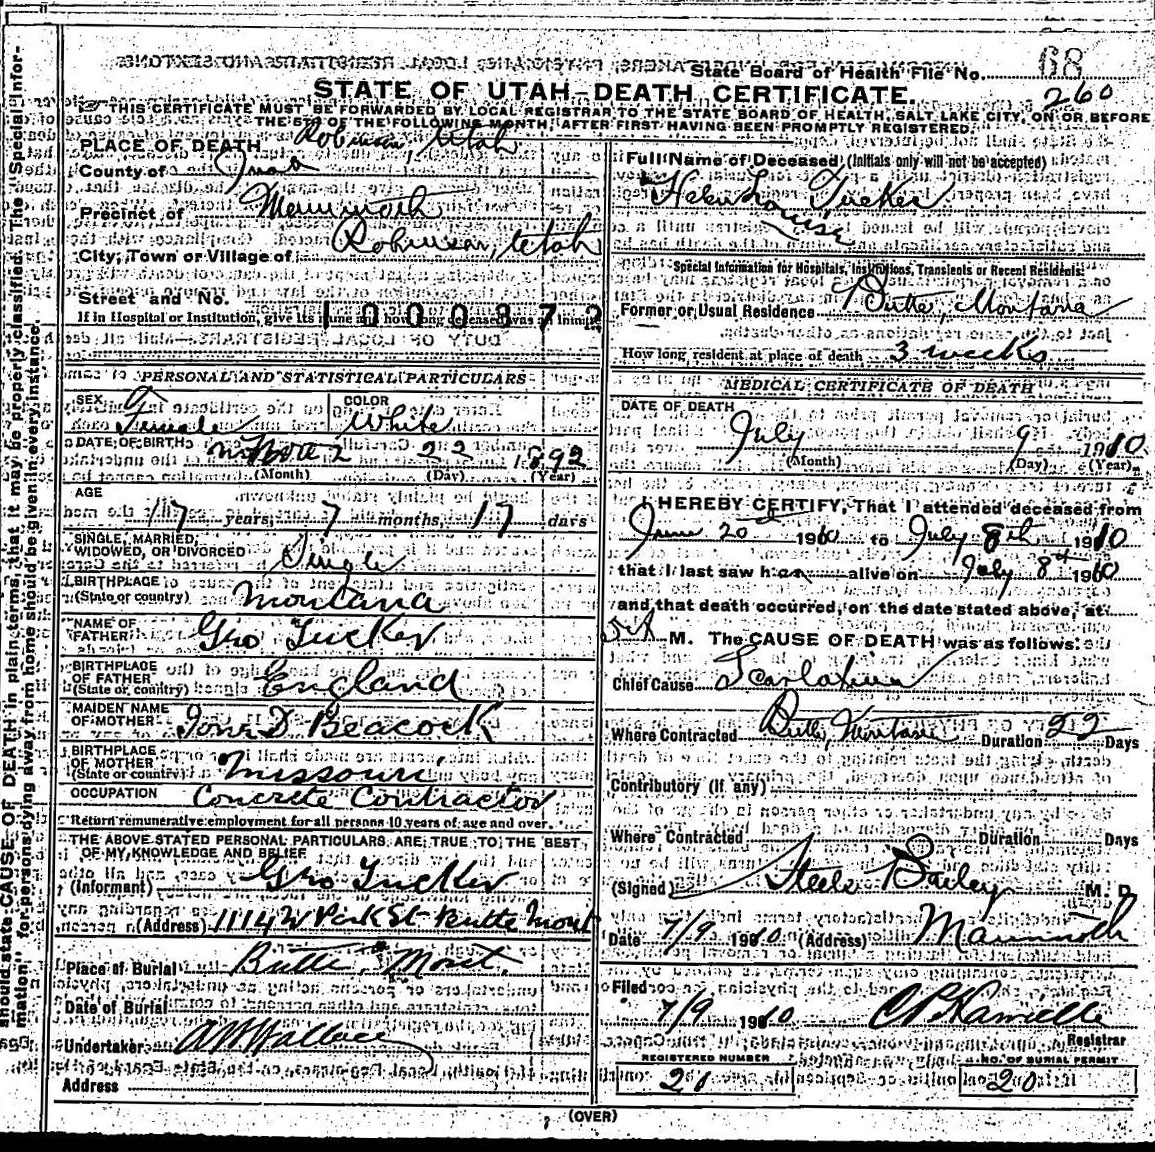 State Board of Health File No. 68
260
STATE OF UTAH—DEATH CERTIFICATE.
THIS CERTIFICATE MUST BE FORWARDED BY LOCAL REGISTRAR TO THE STATE BOARD OF HEALTH, SALT LAKE CITY, ON OR BEFORE
THE 5TH OF THE FOLLOWING MONTH, AFTER FIRST HAVING BEEN PROMPTLY REGISTERED.
should state CAUSE OF DEATH in plain terms, that it may be properly classified. The "Special Infor-
mation" for persons dying away from home should be given in every instance.
PLACE OF DEATH Robinson, Utah
County of
Precinct of Mammoth
City, Town or Village of Robinson, Utah
Street and No.
If in Hospital or Institution, give its name and how long deceased was an inmate
1000872
PERSONAL AND STATISTICAL PARTICULARS
SEX Female
COLOR White
DATE OF BIRTH 22 1892
(Month) (Day) (Year)
AGE
17 years, 7 months, 17 days
SINGLE, MARRIED,
WIDOWED, OR DIVORCED Single
BIRTHPLACE
(State or country) Montana
NAME OF
FATHER Geo Tucker
BIRTHPLACE
OF FATHER
(State or country) England
MAIDEN NAME
OF MOTHER D Beacock
BIRTHPLACE
OF MOTHER
(State or country) Missouri
OCCUPATION Concrete Contractor
Return remunerative employment for all persons 10 years of age and over.
THE ABOVE STATED PERSONAL PARTICULARS ARE TRUE TO THE BEST
OF MY KNOWLEDGE AND BELIEF
(Informant) Geo Tucker
(Address) 1114 W Park St Butte Mont
Place of Burial Butte, Mont.
Date of Burial
Undertaker Wallace
Address
Full Name of Deceased (Initials only will not be accepted)
Helen Louise Tucker
Special Information for Hospitals, Institutions, Transients or Recent Residents.
Former or Usual Residence Butte, Montana
How long resident at place of death 3 weeks
MEDICAL CERTIFICATE OF DEATH
DATE OF DEATH
July 9 1910
(Month) (Day) (Year)
I HEREBY CERTIFY, That I attended deceased from
June 20 1910 to July 8th 1910
that I last saw her alive on July 8th 1910
and that death occurred, on the date stated above, at
M. The CAUSE OF DEATH was as follows:
Chief Cause Scarlatina
Where Contracted Butte, Montana Duration 22 Days
Contributory (if any)
Where Contracted Duration Days
(Signed) Steele Bailey M. D.
Date 7/9 1910 (Address) Mammoth
Filed
7/9 1910
Registrar
REGISTERED NUMBER
21
NO. OF BURIAL PERMIT
20
(OVER)